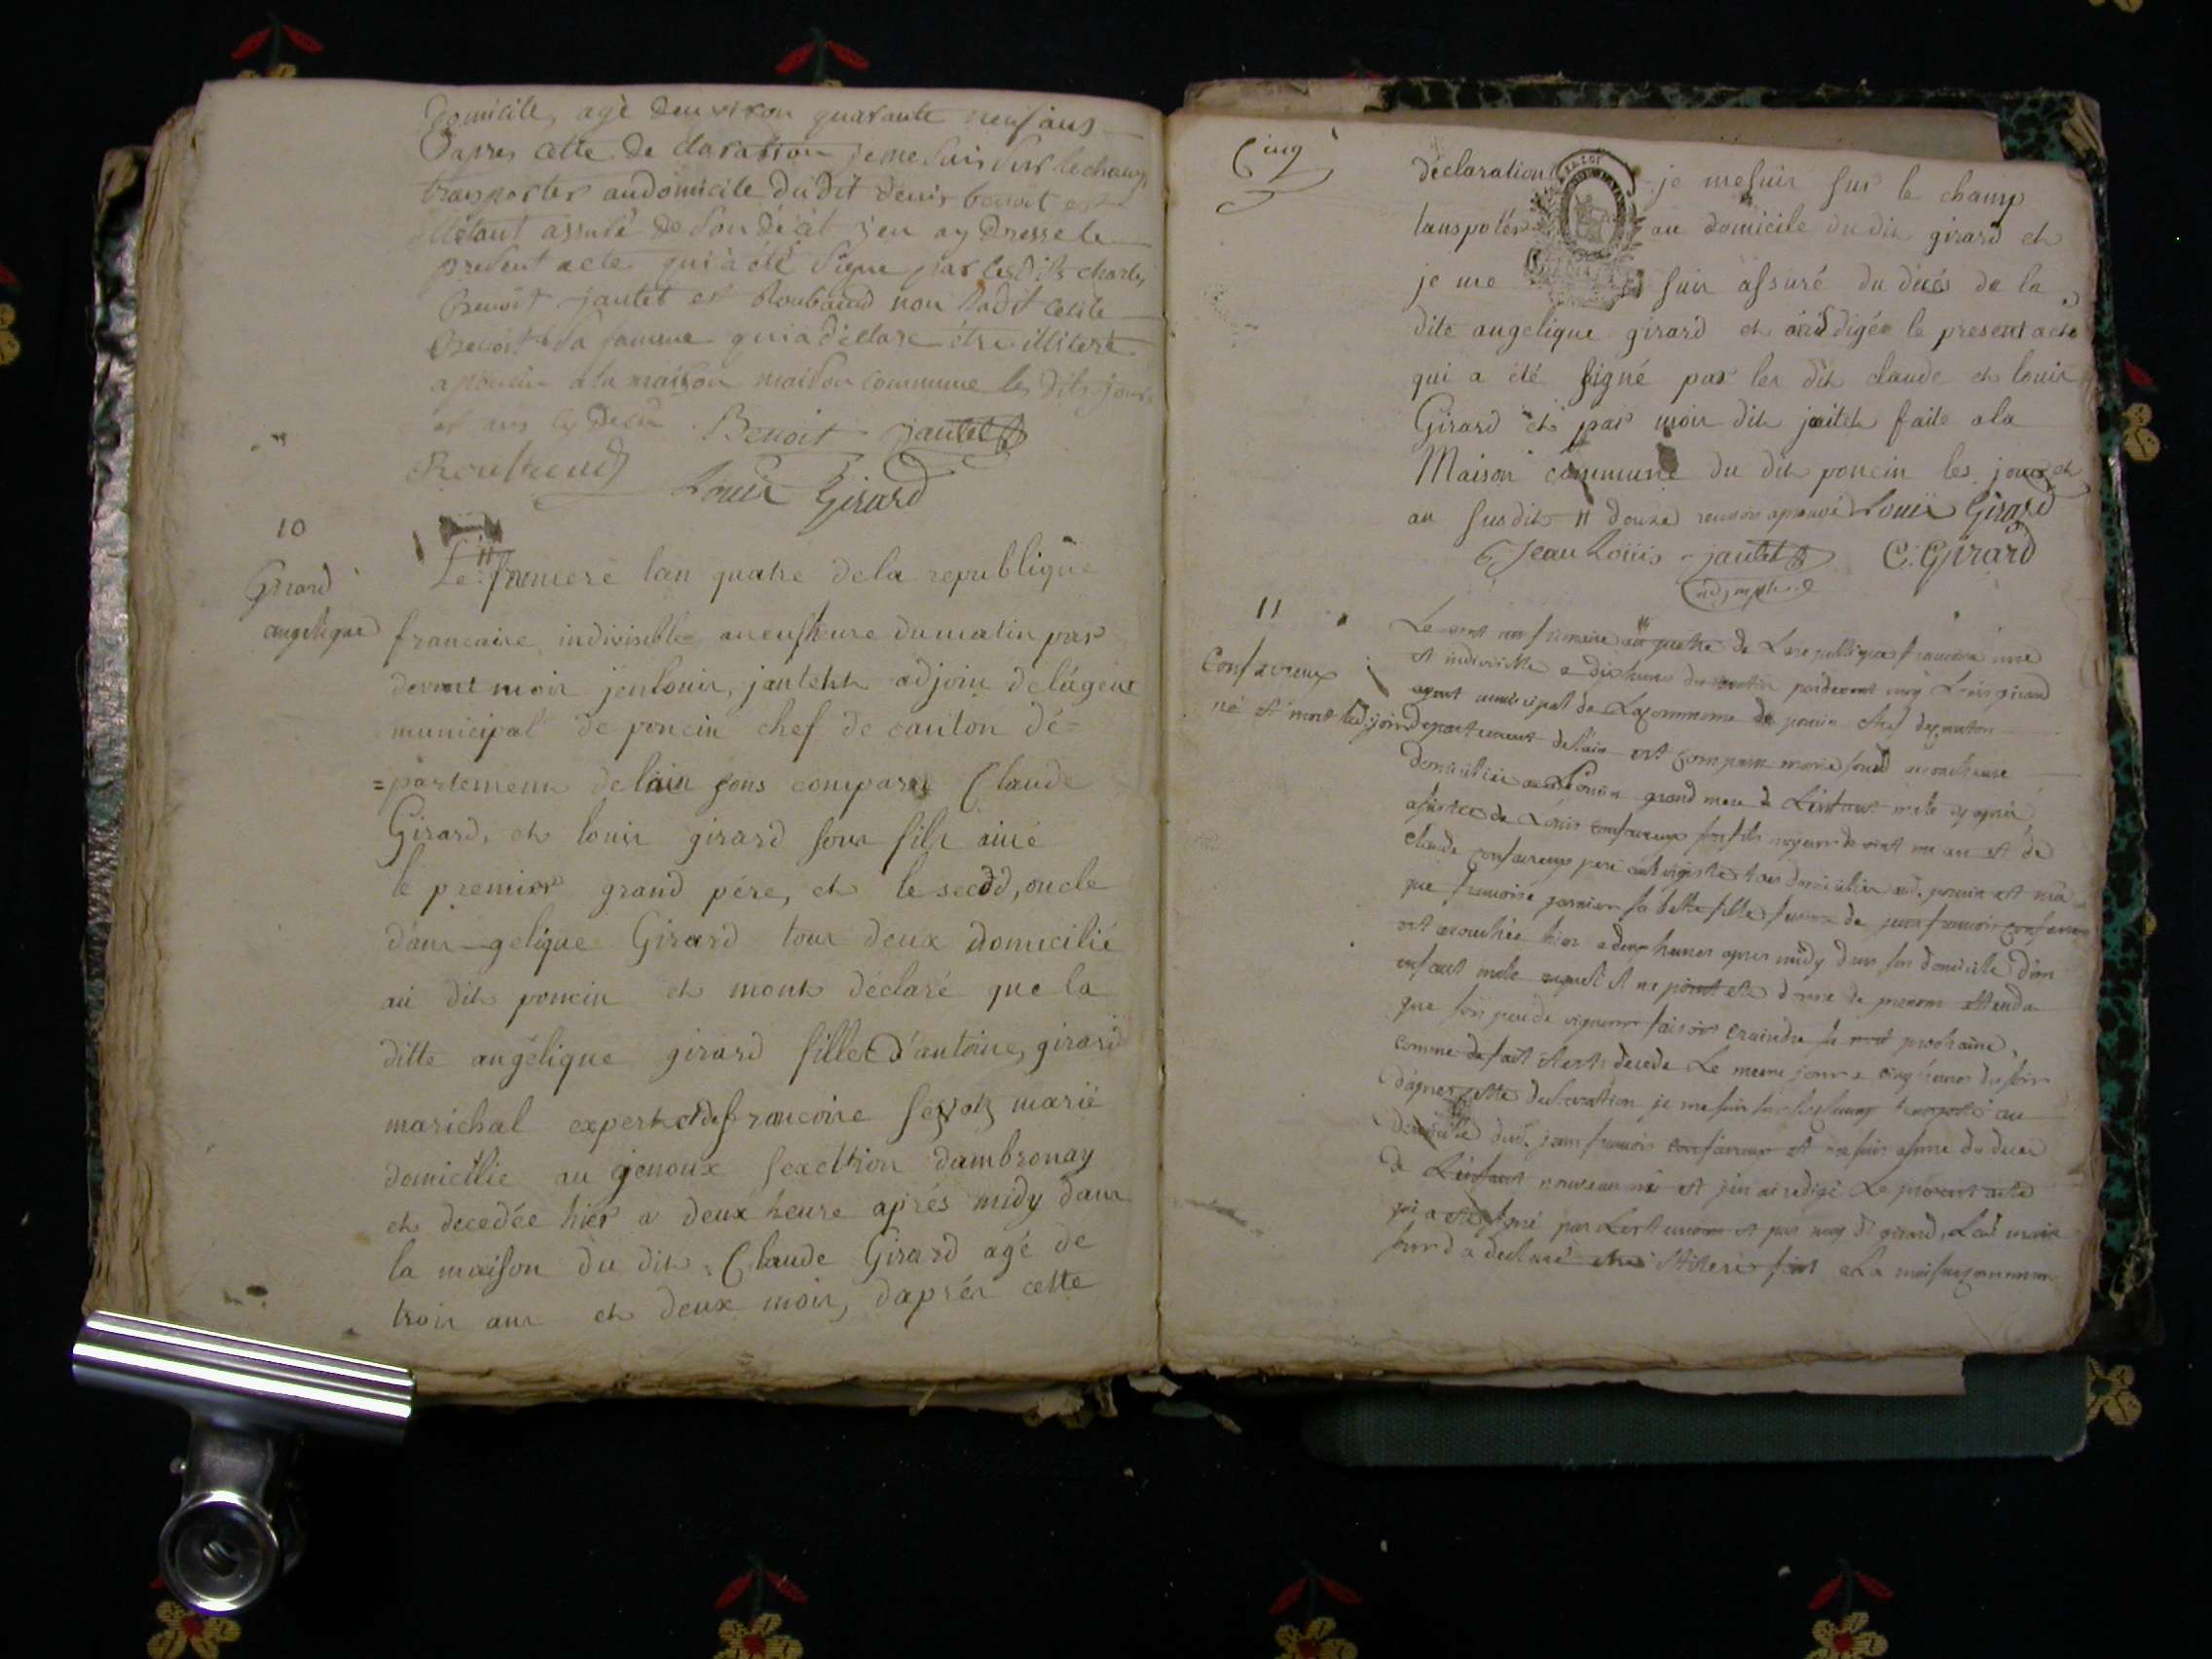 domicile, agé denviron quarante neuf ans
Dapres cette de claration je me suis sur le champ
transporter au domicile dudit denis benoit et
métant assuré de son décät j'en ay dressé le
present acte qui à été signe par les dits charles
Benoit jantet et Roubaud non ladit cecile
Benoit sa famme qui a déclaré étre illiteré
a poncin a la maison maison commune les dits jours
et ans cy dessu Benoit jantet
Louis Girard
10
Girard
angelique
Le 11 frimere lan quatre dela republique
francaire indivisible aneufheure dumatin par
devant moi jenlouis, jantett adjoin delágent
municipal de poncin chef de canton dé=
=partement delain sons comparu Claude
Girard, et louis girard sons fils ainé
le premier grand pére, et le secdd, oncle
dans-gelique Girard tous deux domicilié
au dit poncin et mont déclaré que la
ditte angélique girard fille d'antoine, girard
marichal expert et de francoise marié
domicilie au genoux sexcttion dambronay
et decedée hier a deux heure aprés midy dans
la maison du dit Claude Girard agé de
trois ans et deux mois, daprés cette
Cinq
déclaration je mesuis sur le champ
tanspoter au domicile du dit girard et
je me suis assuré du décés de la
dite angelique girard et airédigée le present acte
qui a été signé par les dit claude et louis
Girard et par moi dit jaitet faite a la
Maison commune du dit poncin les jours et
an susdit 11 douze renvoi aprouvé Louis Girard
Jean Louis jantet C. Girard
adjoint
11
Confavreux
né et mort led. jour
Le vint un frimaire an quatre de La republique francaise une
et indivisible a dix heures du matin pardevant moy Louis girard
agent municipal de La commune de poncin chef de canton
departement de lain est comparu marie accoucheuse
domiciliée a Poncin grand mere de Lenfant mâle cy après
assistée de Louis confavreux son fils majeur de vint un an et de
claude confavreux pere tous domicilies aud. poncin et ma
que francoise garnier sa belle fille femme de jean francois confavreux
est acouchée hier a deux heures apres midy dans son domicile d'un
enfant mâle auquel il na point été donné de prenom attendu
que son peu de vigueur faisoit craindre sa mort prochaine,
comme de fait il est décédé Le meme jour a cinq heures du soir
d'apres cette declaration je me suis sur le champ transporté au
domicille dud. jean francois confavreux et me suis assuré du deces
de Lenfant nouveau né et j'en ai redigé Le present acte
qui a été signé par Les temoins et par moy dt girard, Lad. marie
a declaré etre illiteré fait a La maison commune